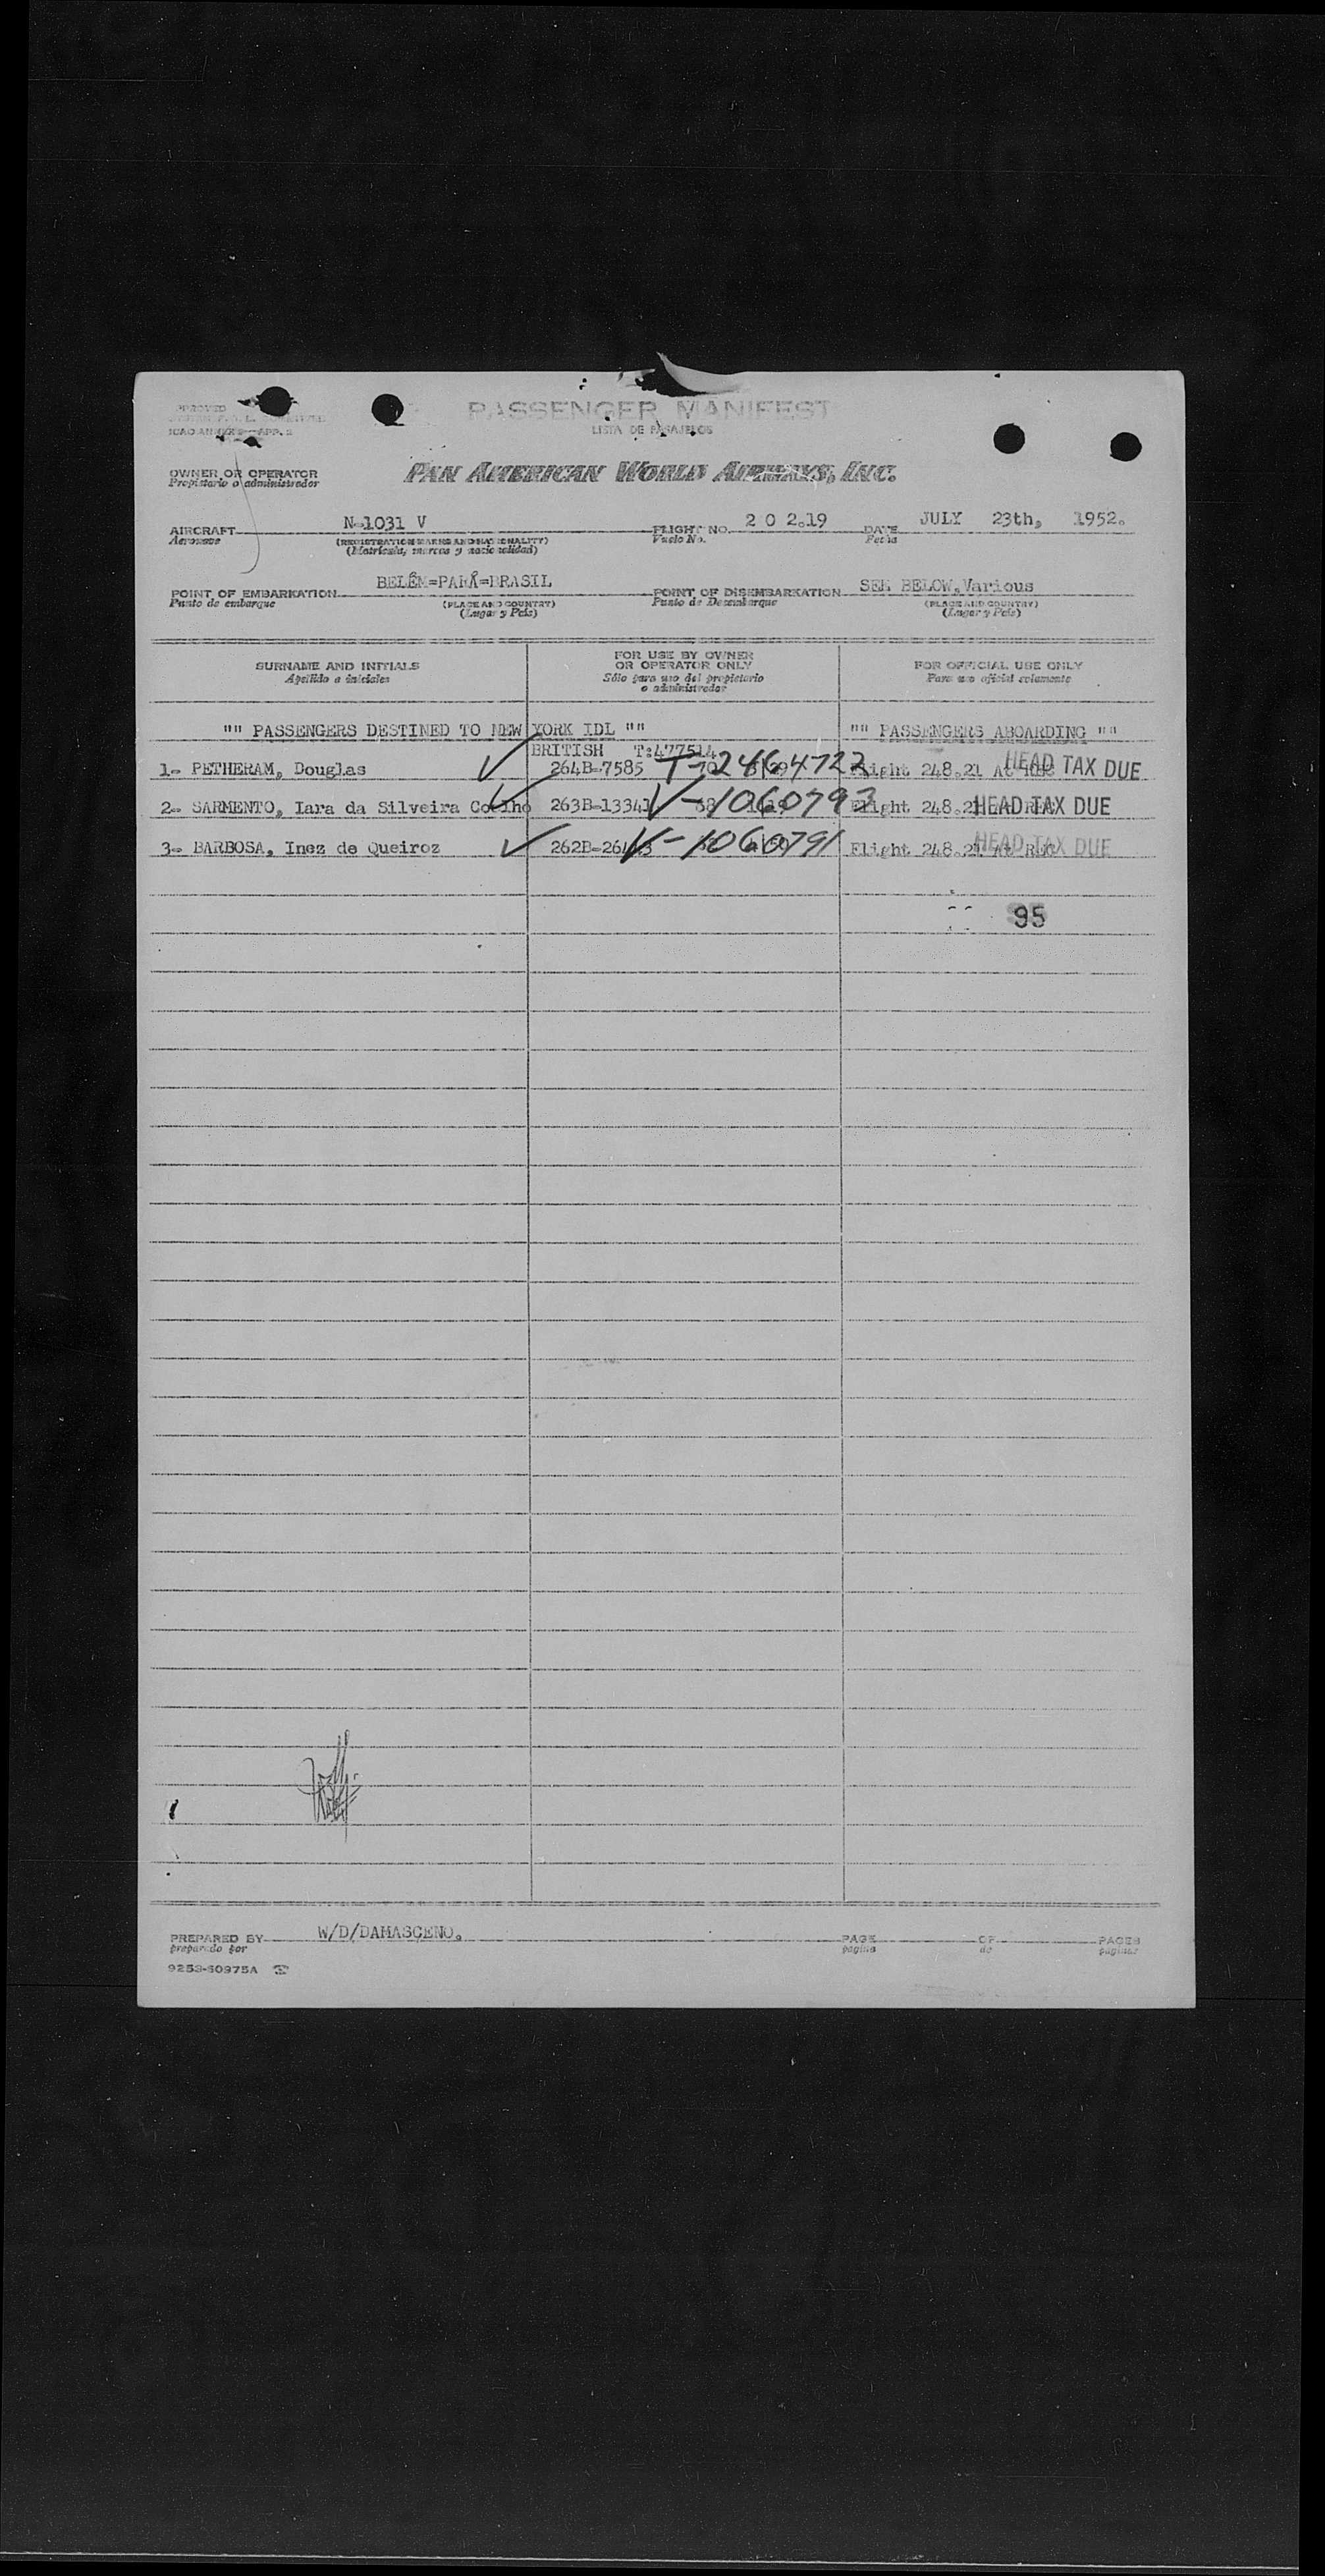 PASSENGER MANIFEST
LISTA DE PASAJEROS
ICAO ANNEX 9—APP. 2
OWNER OR OPERATOR
Propietario o administrador
PAN AMERICAN WORLD AIRWAYS, INC.
AIRCRAFT N-1031 V FLIGHT NO. 2 0 2.19 DATE JULY 23th, 1952.
Aeronave (REGISTRATION MARKS AND NATIONALITY) Vuelo No. Fecha
(Matrícula, marcas y nacionalidad)
POINT OF EMBARKATION BELÉM=PARÁ=BRASIL POINT OF DISEMBARKATION SEE BELOW,Various
Punto de embarque (PLACE AND COUNTRY) Punto de Desembarque (PLACE AND COUNTRY)
(Lugar y País) (Lugar y País)
SURNAME AND INITIALS FOR USE BY OWNER OR OPERATOR ONLY FOR OFFICIAL USE ONLY
Apellido e iniciales Sólo para uso del propietario o administrador Para uso oficial solamente
"" PASSENGERS DESTINED TO NEW YORK IDL "" "" PASSENGERS ABOARDING ""
BRITISH T:477514
1- PETHERAM, Douglas 264B-7585 T-2464722 Flight 248.21 At HEAD TAX DUE
2- SARMENTO, Iara da Silveira Coelho 263B-13341 V-1060793 Flight 248.21 HEAD TAX DUE
3- BARBOSA, Inez de Queiroz V-1060791 Flight 248.21 At HEAD TAX DUE
95
PREPARED BY W/D/DAMASCENO. PAGE OF PAGES
preparado por página de páginas
9253-60975A